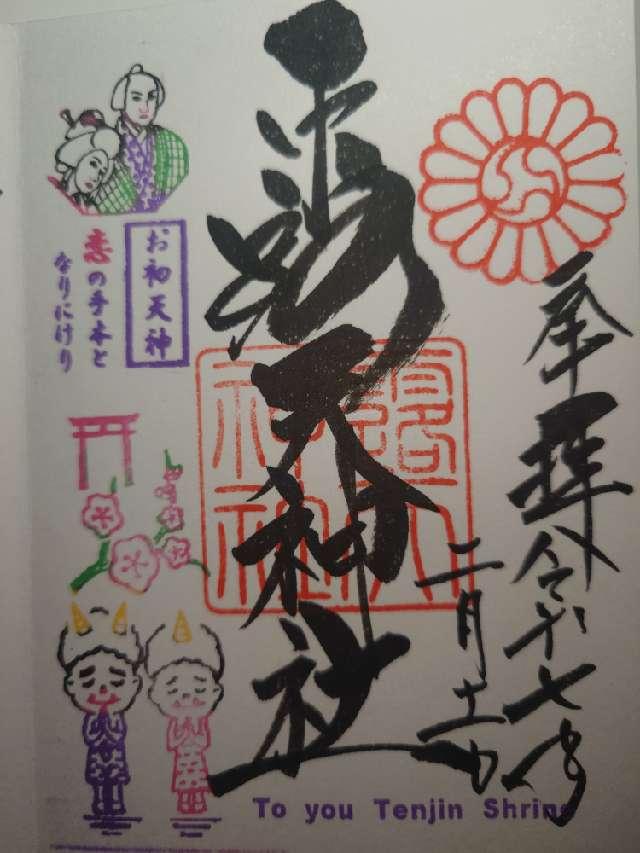 奉拝 令和七年
二月十一日
露天神社
露天
神社
お初天神
恋の手本と
なりにけり
To you Tenjin Shrine